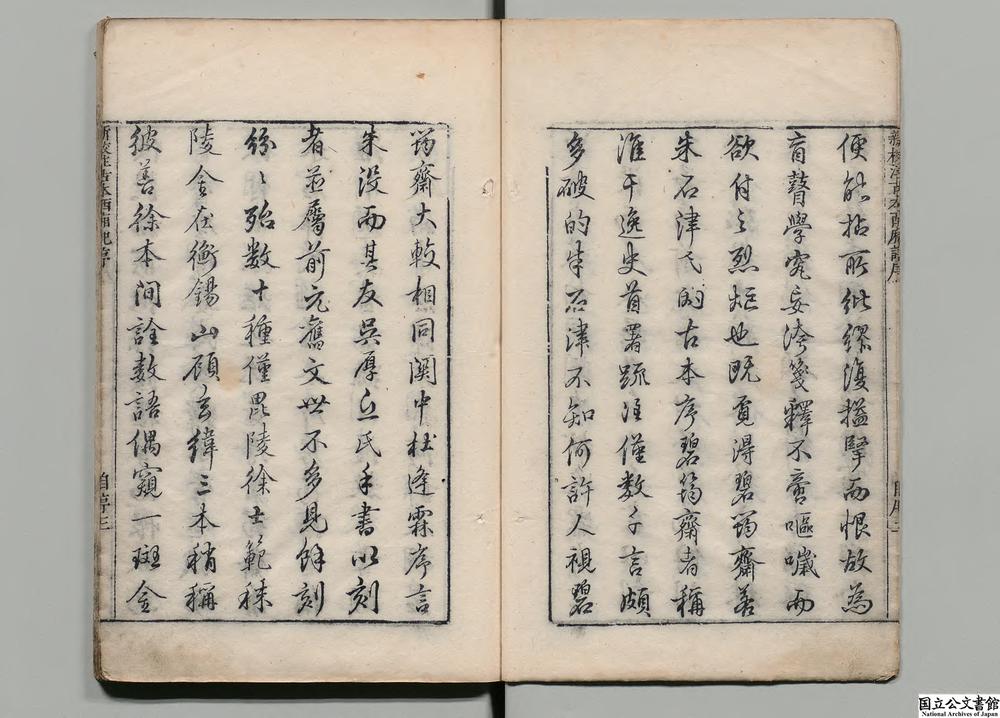 新校注古本西廂記序
自序二
便能拈所紕繆復搤掔而恨故為
盲瞽學究妄誇箋釋不啻嘔噦而
欲付之烈炬也既覓得碧筠齋若
朱石津氏的古本序碧筠齋者稱
淮干逸史首署疏注僅數千言頗
多破的朱石津不知何許人視碧
筠齋大較相同關中杜逢霖序言
朱沒而其友吳厚丘氏手書以刻
者並屬前元舊文世不多見餘刻
紛〻殆數十種僅毘陵徐士範秣
陵金在衡錫山顧玄緯三本稍稱
彼善徐本間詮數語偶窺一斑金
新校注古本西廂記序
自序三
国立公文書館
National Archives of Japan